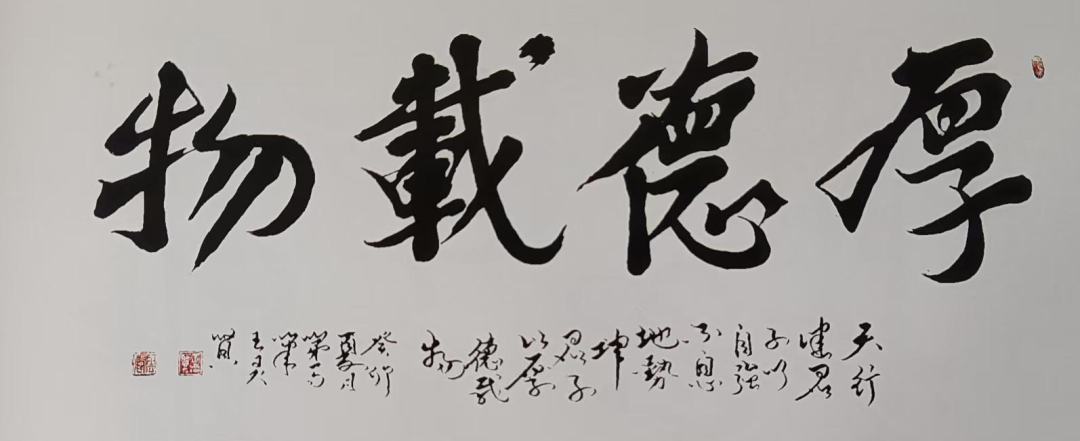 厚德載物
天行
健君
子以
自強
不息
地勢
坤
君子
以厚
德載
物
癸卯
夏月